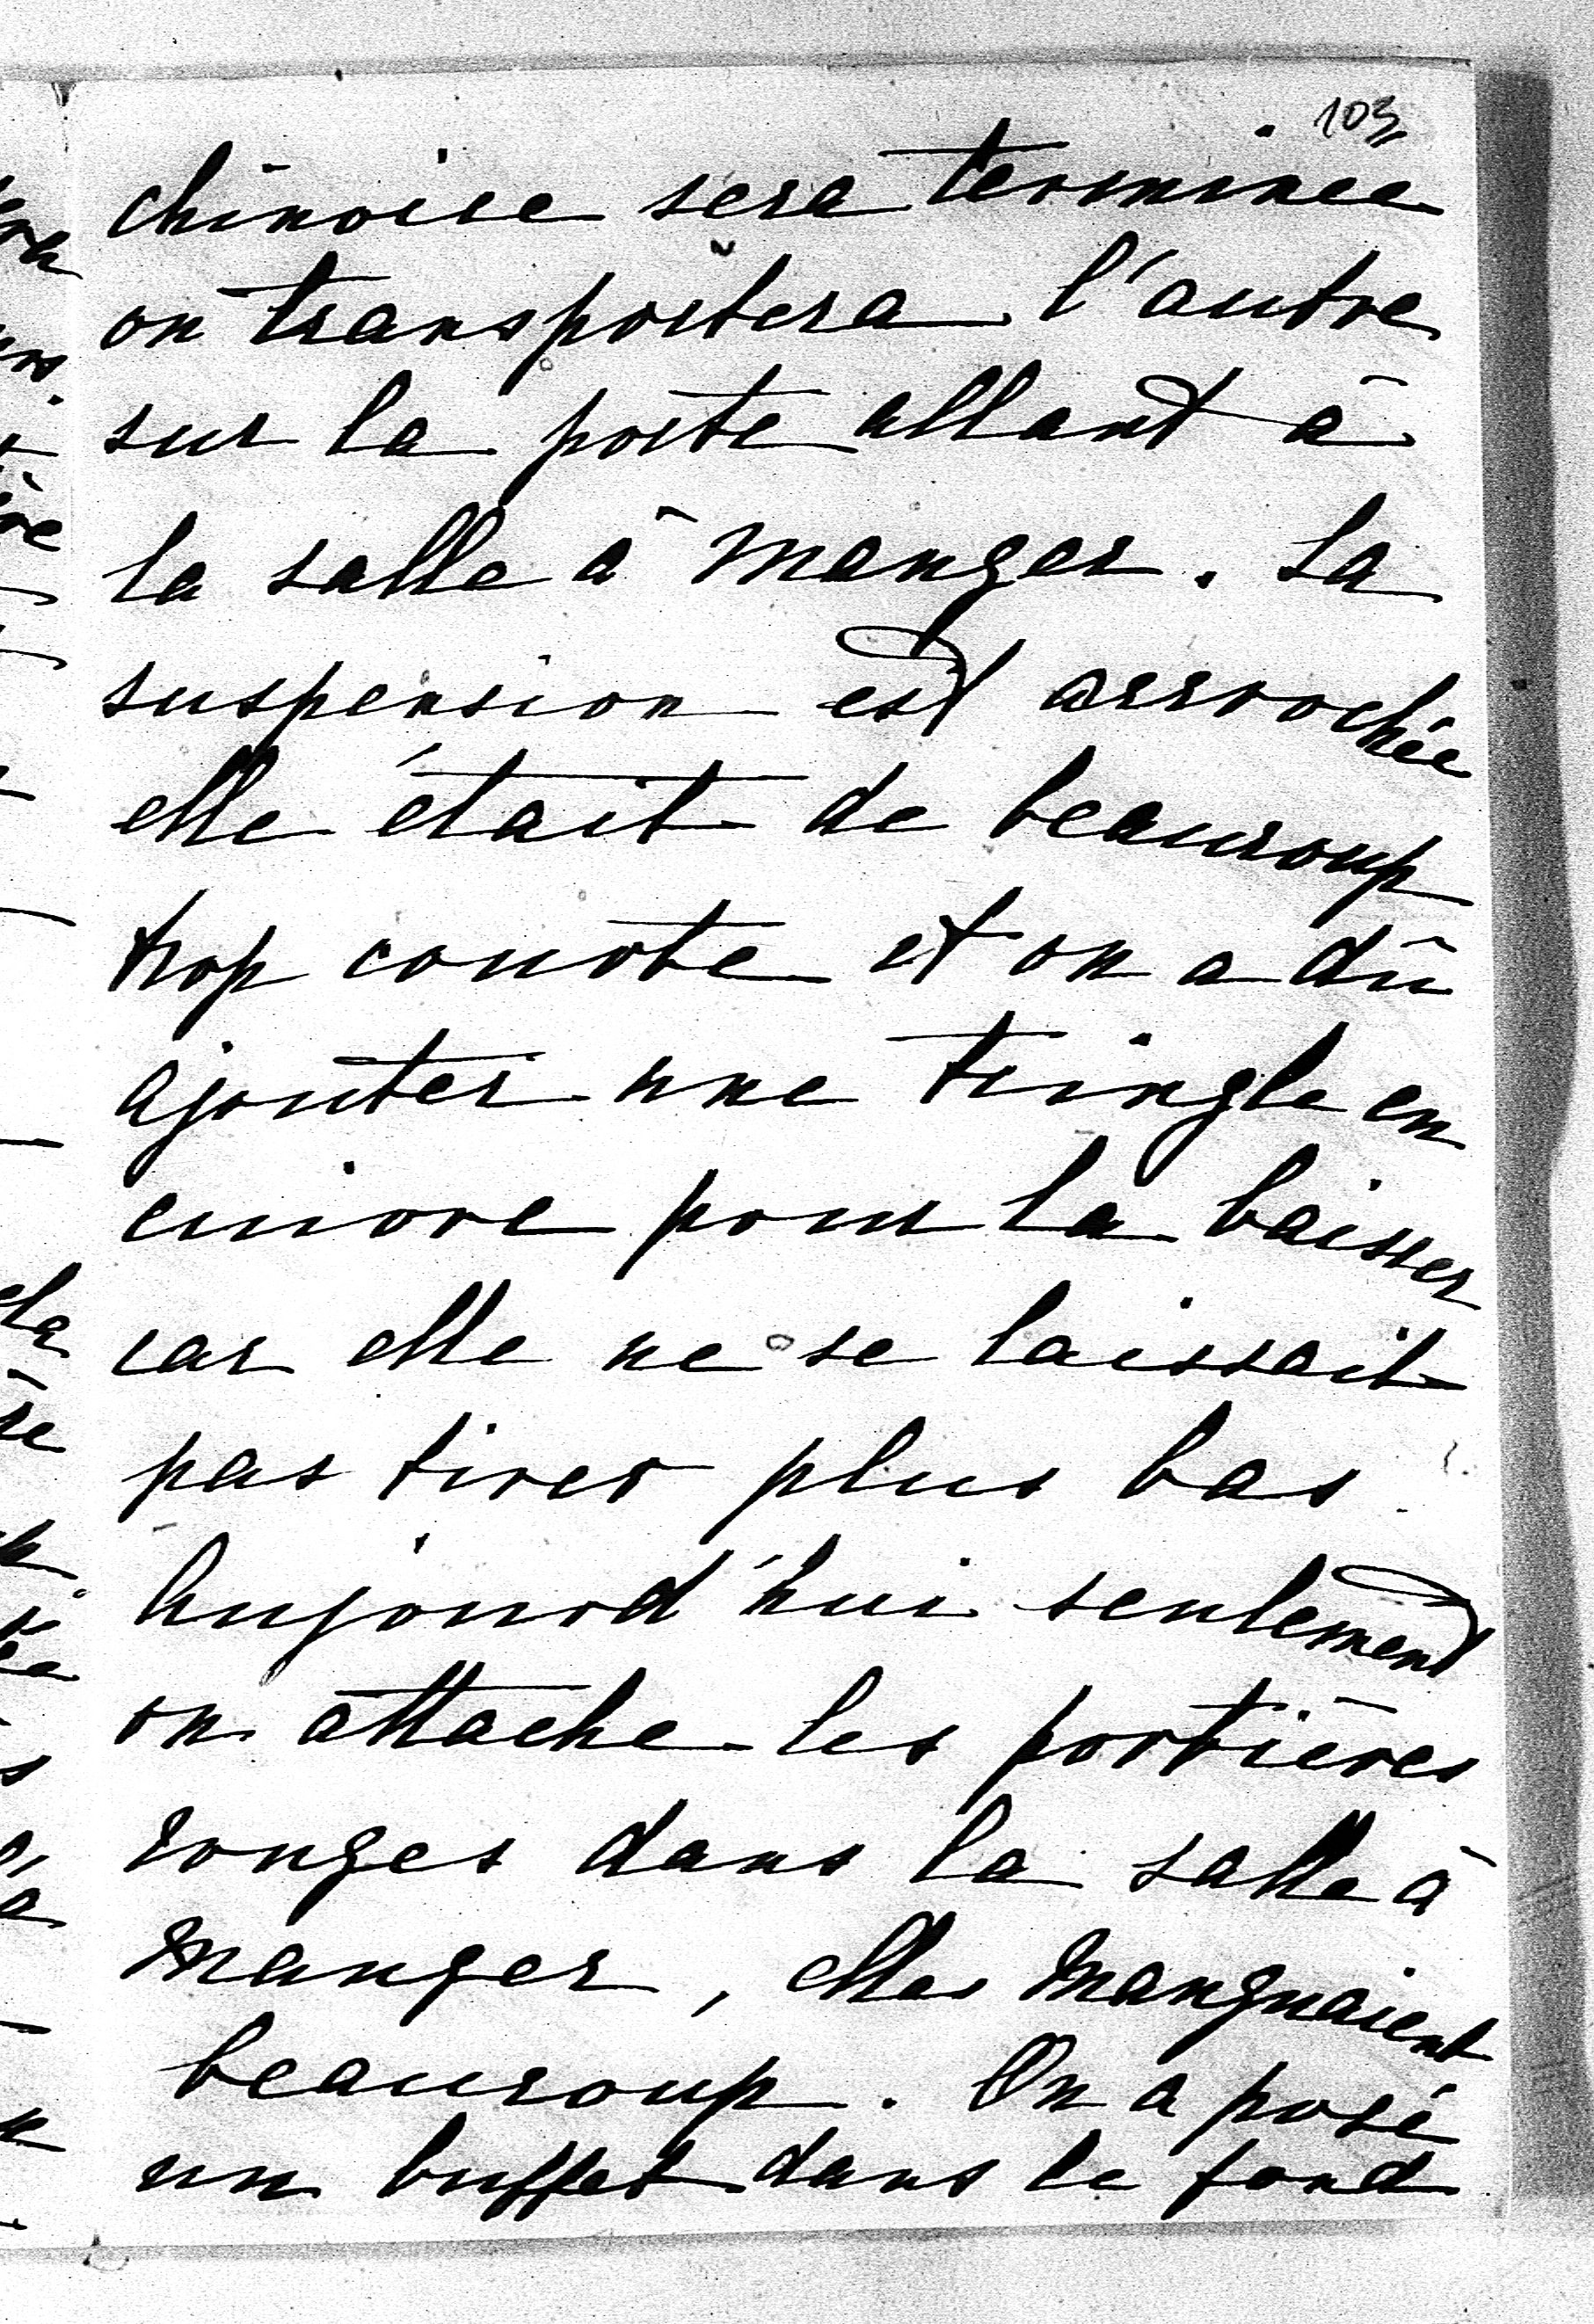 103
chinoise sera terminée
on transportera l'autre
sur la porte allant à
la salle à manger. La
suspension est accrochée
elle était de beaucoup
trop courte et on a dû
ajouter une tringle en
cuivre pour la baisser
car elle ne se laissait
pas tirer plus bas
Aujourd'hui seulement
on attache les portières
rouges dans la salle à
manger, elles manquaient
beaucoup. On a posé
un buffet dans le fond